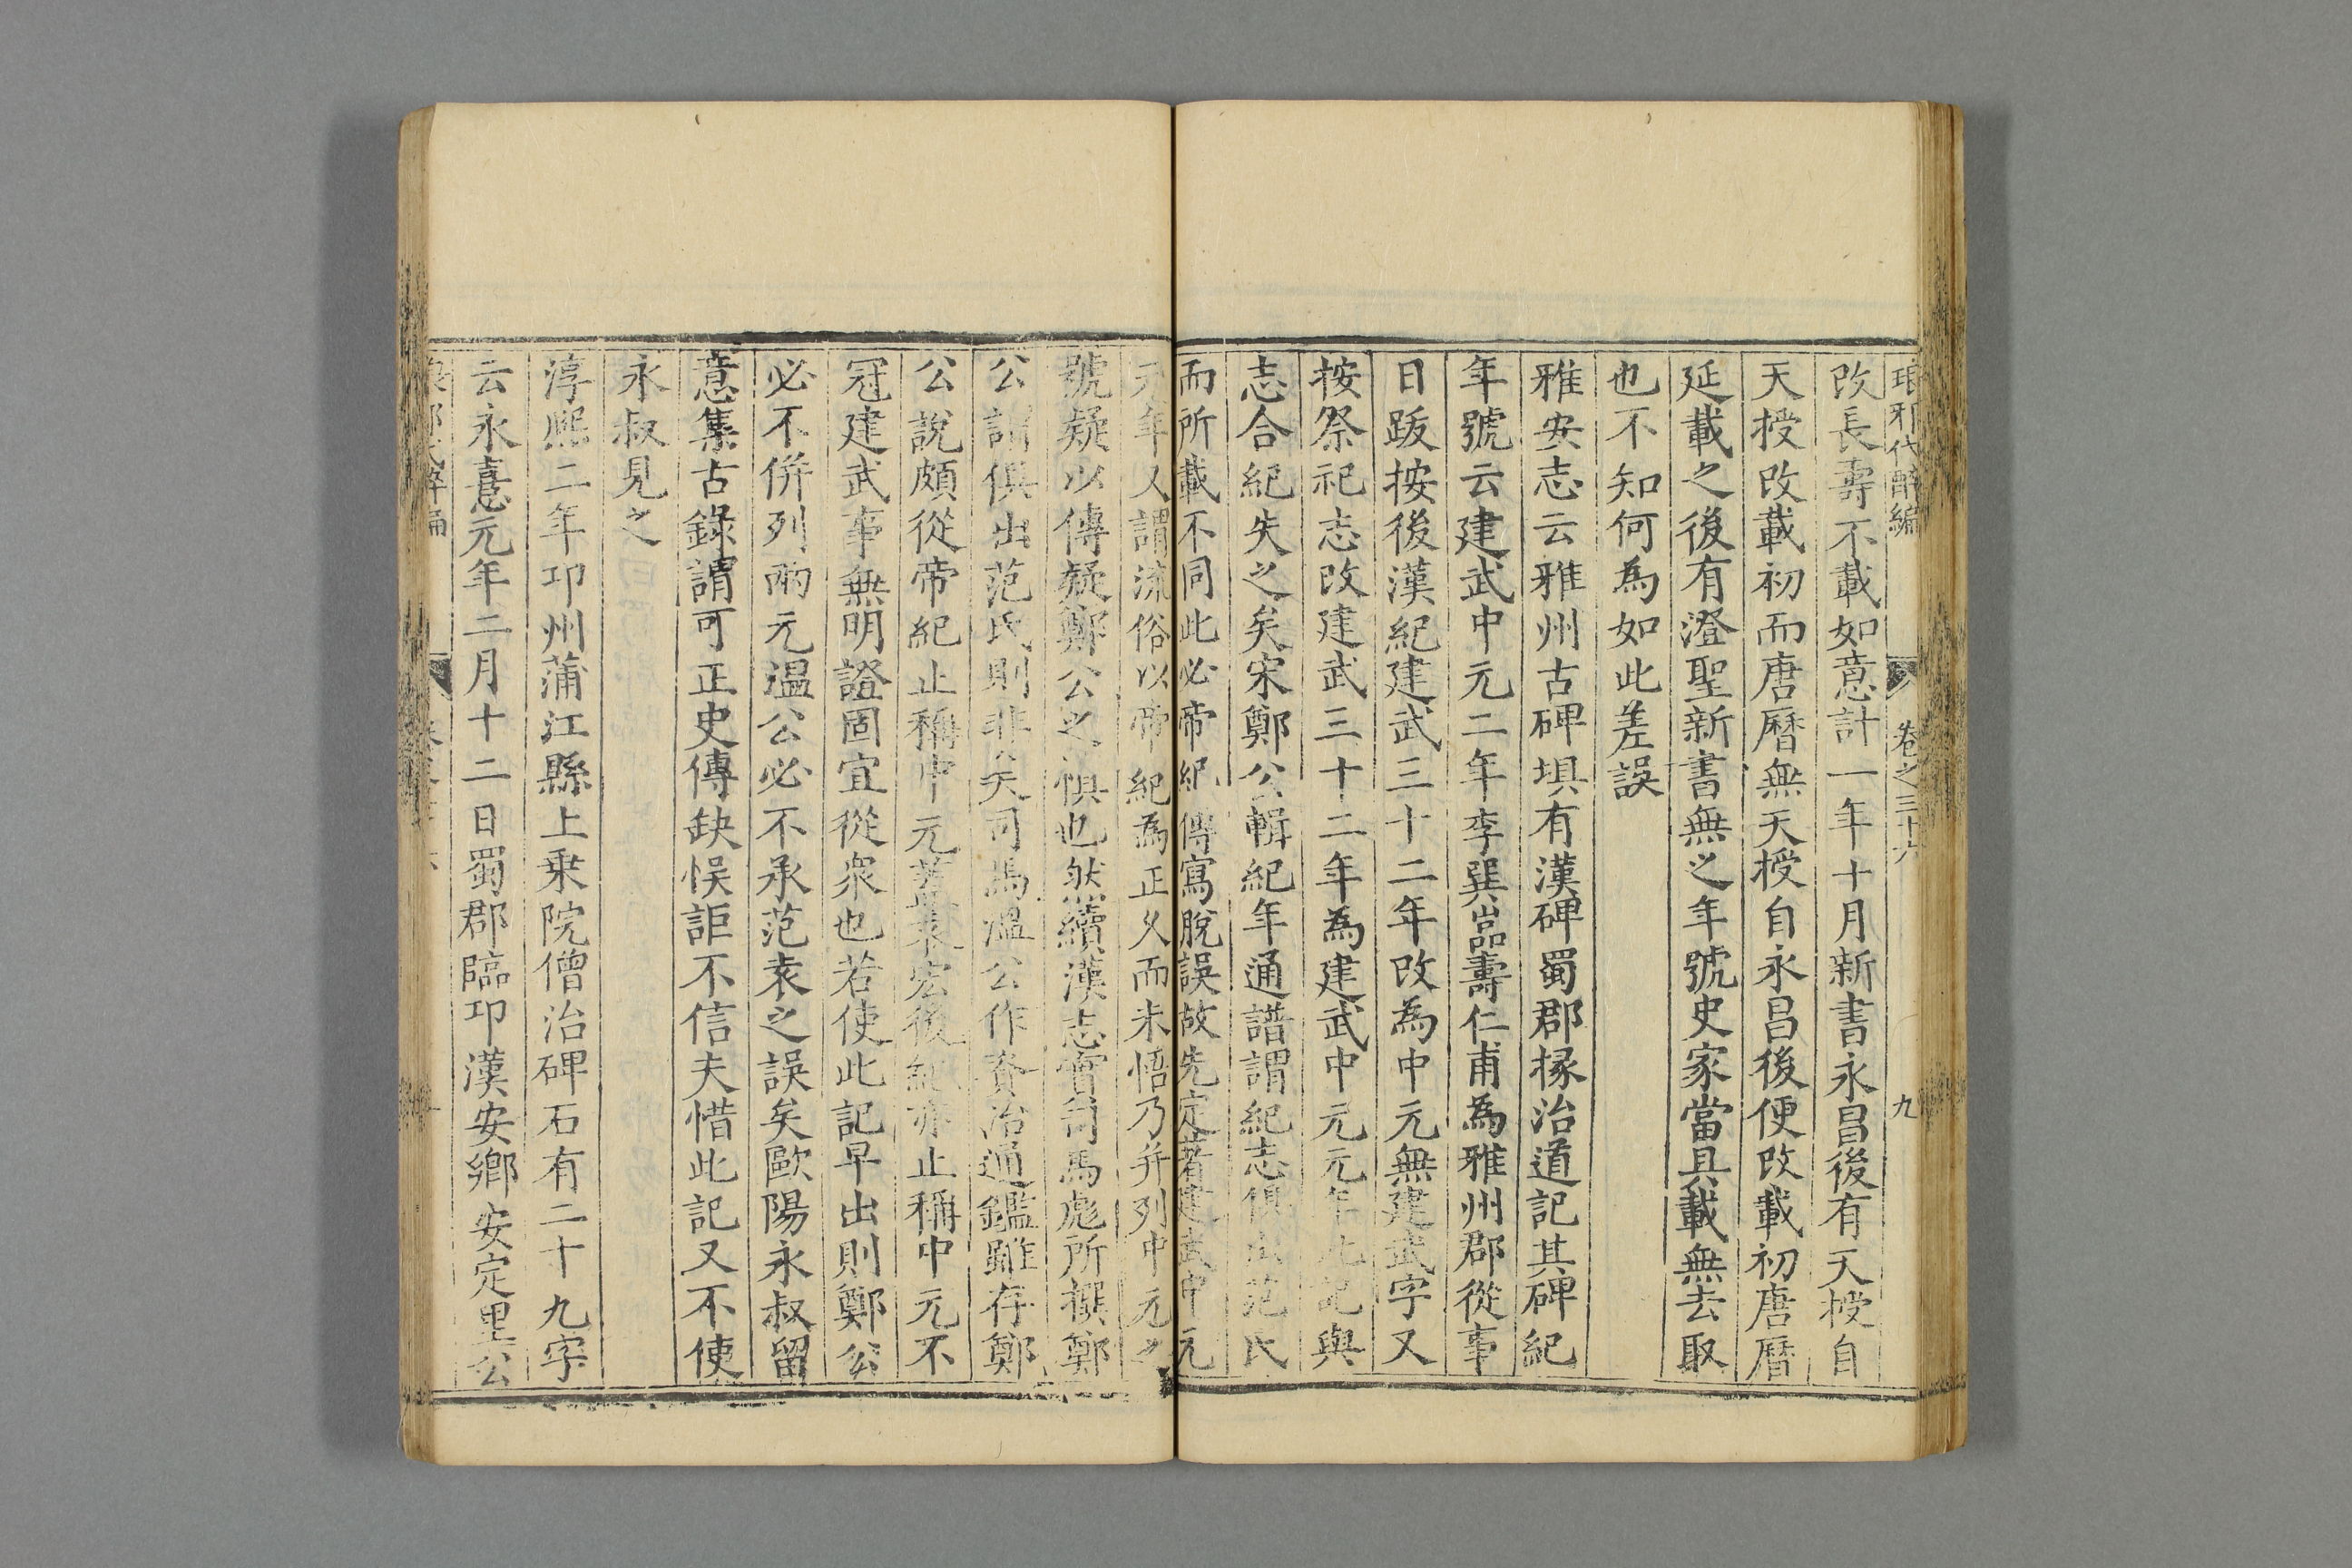 琅邪代醉編 卷之三十六 九
改長壽不載如意計一年十月新書永昌後有天授自
天授改載初而唐曆無天授自永昌後便改載初唐曆
延載之後有澄聖新書無之年號史家當具載無去取
也不知何為如此差誤
雅安志云雅州古碑埧有漢碑蜀郡掾治道記其碑紀
年號云建武中元二年李巽嵓壽仁甫為雅州郡從事
日跋按後漢紀建武三十二年改為中元無建武字又
按祭祀志改建武三十二年為建武中元元年此記與
志合紀失之矣宋鄭公輯紀年通譜謂紀志俱出范氏
而所載不同此必帝紀傳寫脫誤故先定著建武中元
元年又謂流俗以帝紀為正久而未悟乃并列中元之
號疑以傳疑鄭公之慎也然續漢志實司馬彪所撰鄭
公謂俱出范氏則非矣司馬溫公作資治通鑑雖存鄭
公說頗從帝紀止稱中元蓋袁宏後紀亦止稱中元不
冠建武事無明證固宜從衆也若使此記早出則鄭公
必不併列兩元溫公必不承范袁之誤矣歐陽永叔留
意集古錄謂可正史傳缺悮詎不信夫惜此記又不使
永叔見之
淳熙二年卭州蒲江縣上乗院僧治碑石有二十九字
云永憙元年二月十二日蜀郡臨卭漢安鄉安定里公